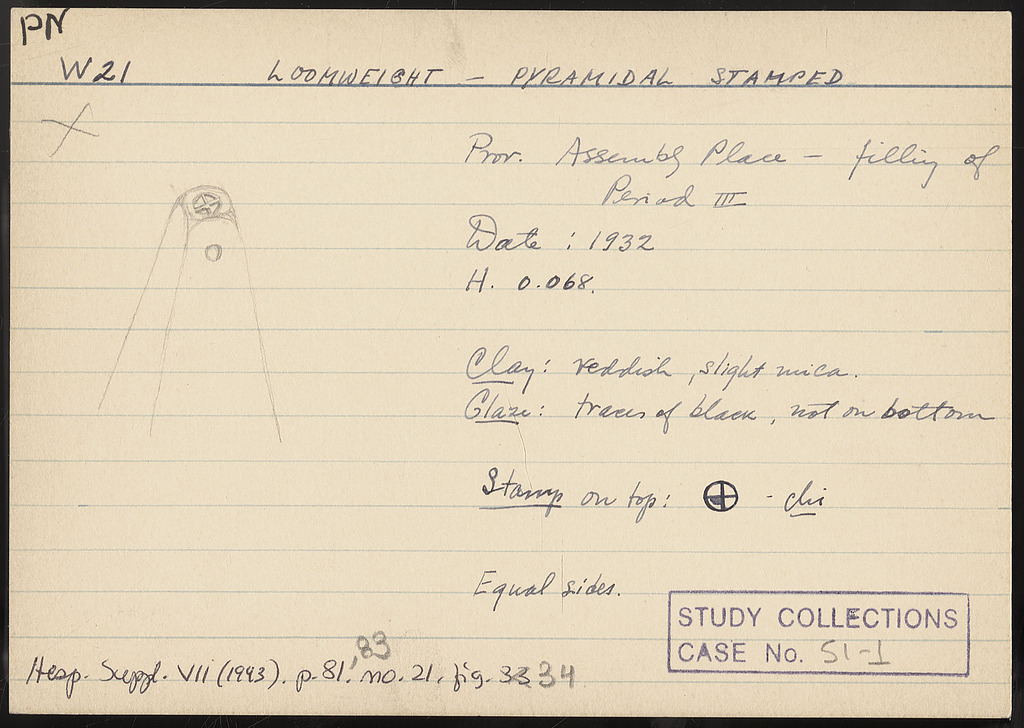 PN
W 21 LOOMWEIGHT — PYRAMIDAL STAMPED
Prov. Assembly Place — filling of
Period III
Date : 1932
H. 0.068.
Clay: reddish, slight mica.
Glaze: traces of black, not on bottom
Stamp on top: - chi
Equal sides.
STUDY COLLECTIONS
CASE No. S1-1
83
Hesp. Suppl. VII (1943). p. 81, no. 21, fig. 33 34